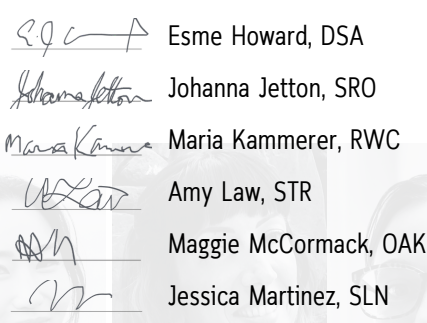 Esme Howard, DSA
Johanna Jetton Johanna Jetton, SRO
Maria Kammerer, RWC
Amy Law, STR
Maggie McCormack, OAK
Jessica Martinez, SLN